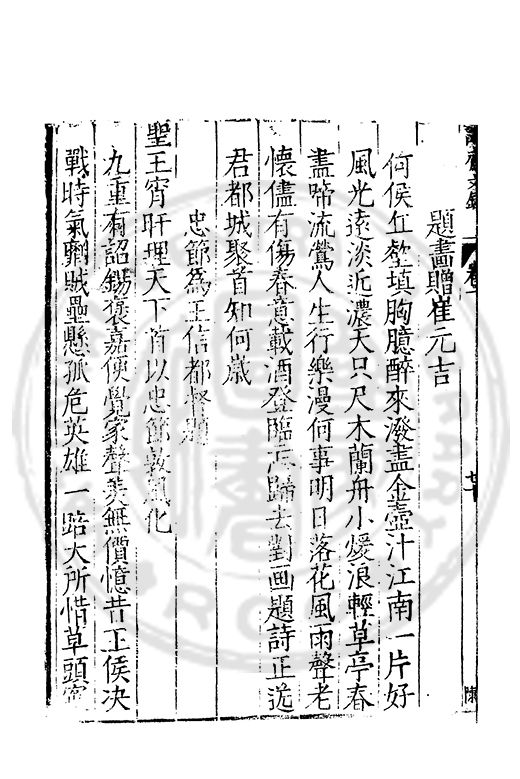 題畫贈崔元吉
何侯丘壑填胸臆醉來潑盡金壺汁江南一片好
風光遠淡近濃天只尺木蘭舟小煖浪輕草亭春
盡啼流鶯人生行樂漫何事明日落花風雨聲老
懷儘有傷春意載酒登臨忘歸去對画題詩正送
君都城聚首知何歲
忠節為王信都督題
聖王宵旰理天下首以忠節敦風化
九重有詔錫褒嘉便覺家聲美無價憶昔王侯决
戰時氣剛賊壘懸孤危英雄一踣大所惜草頭
卷一